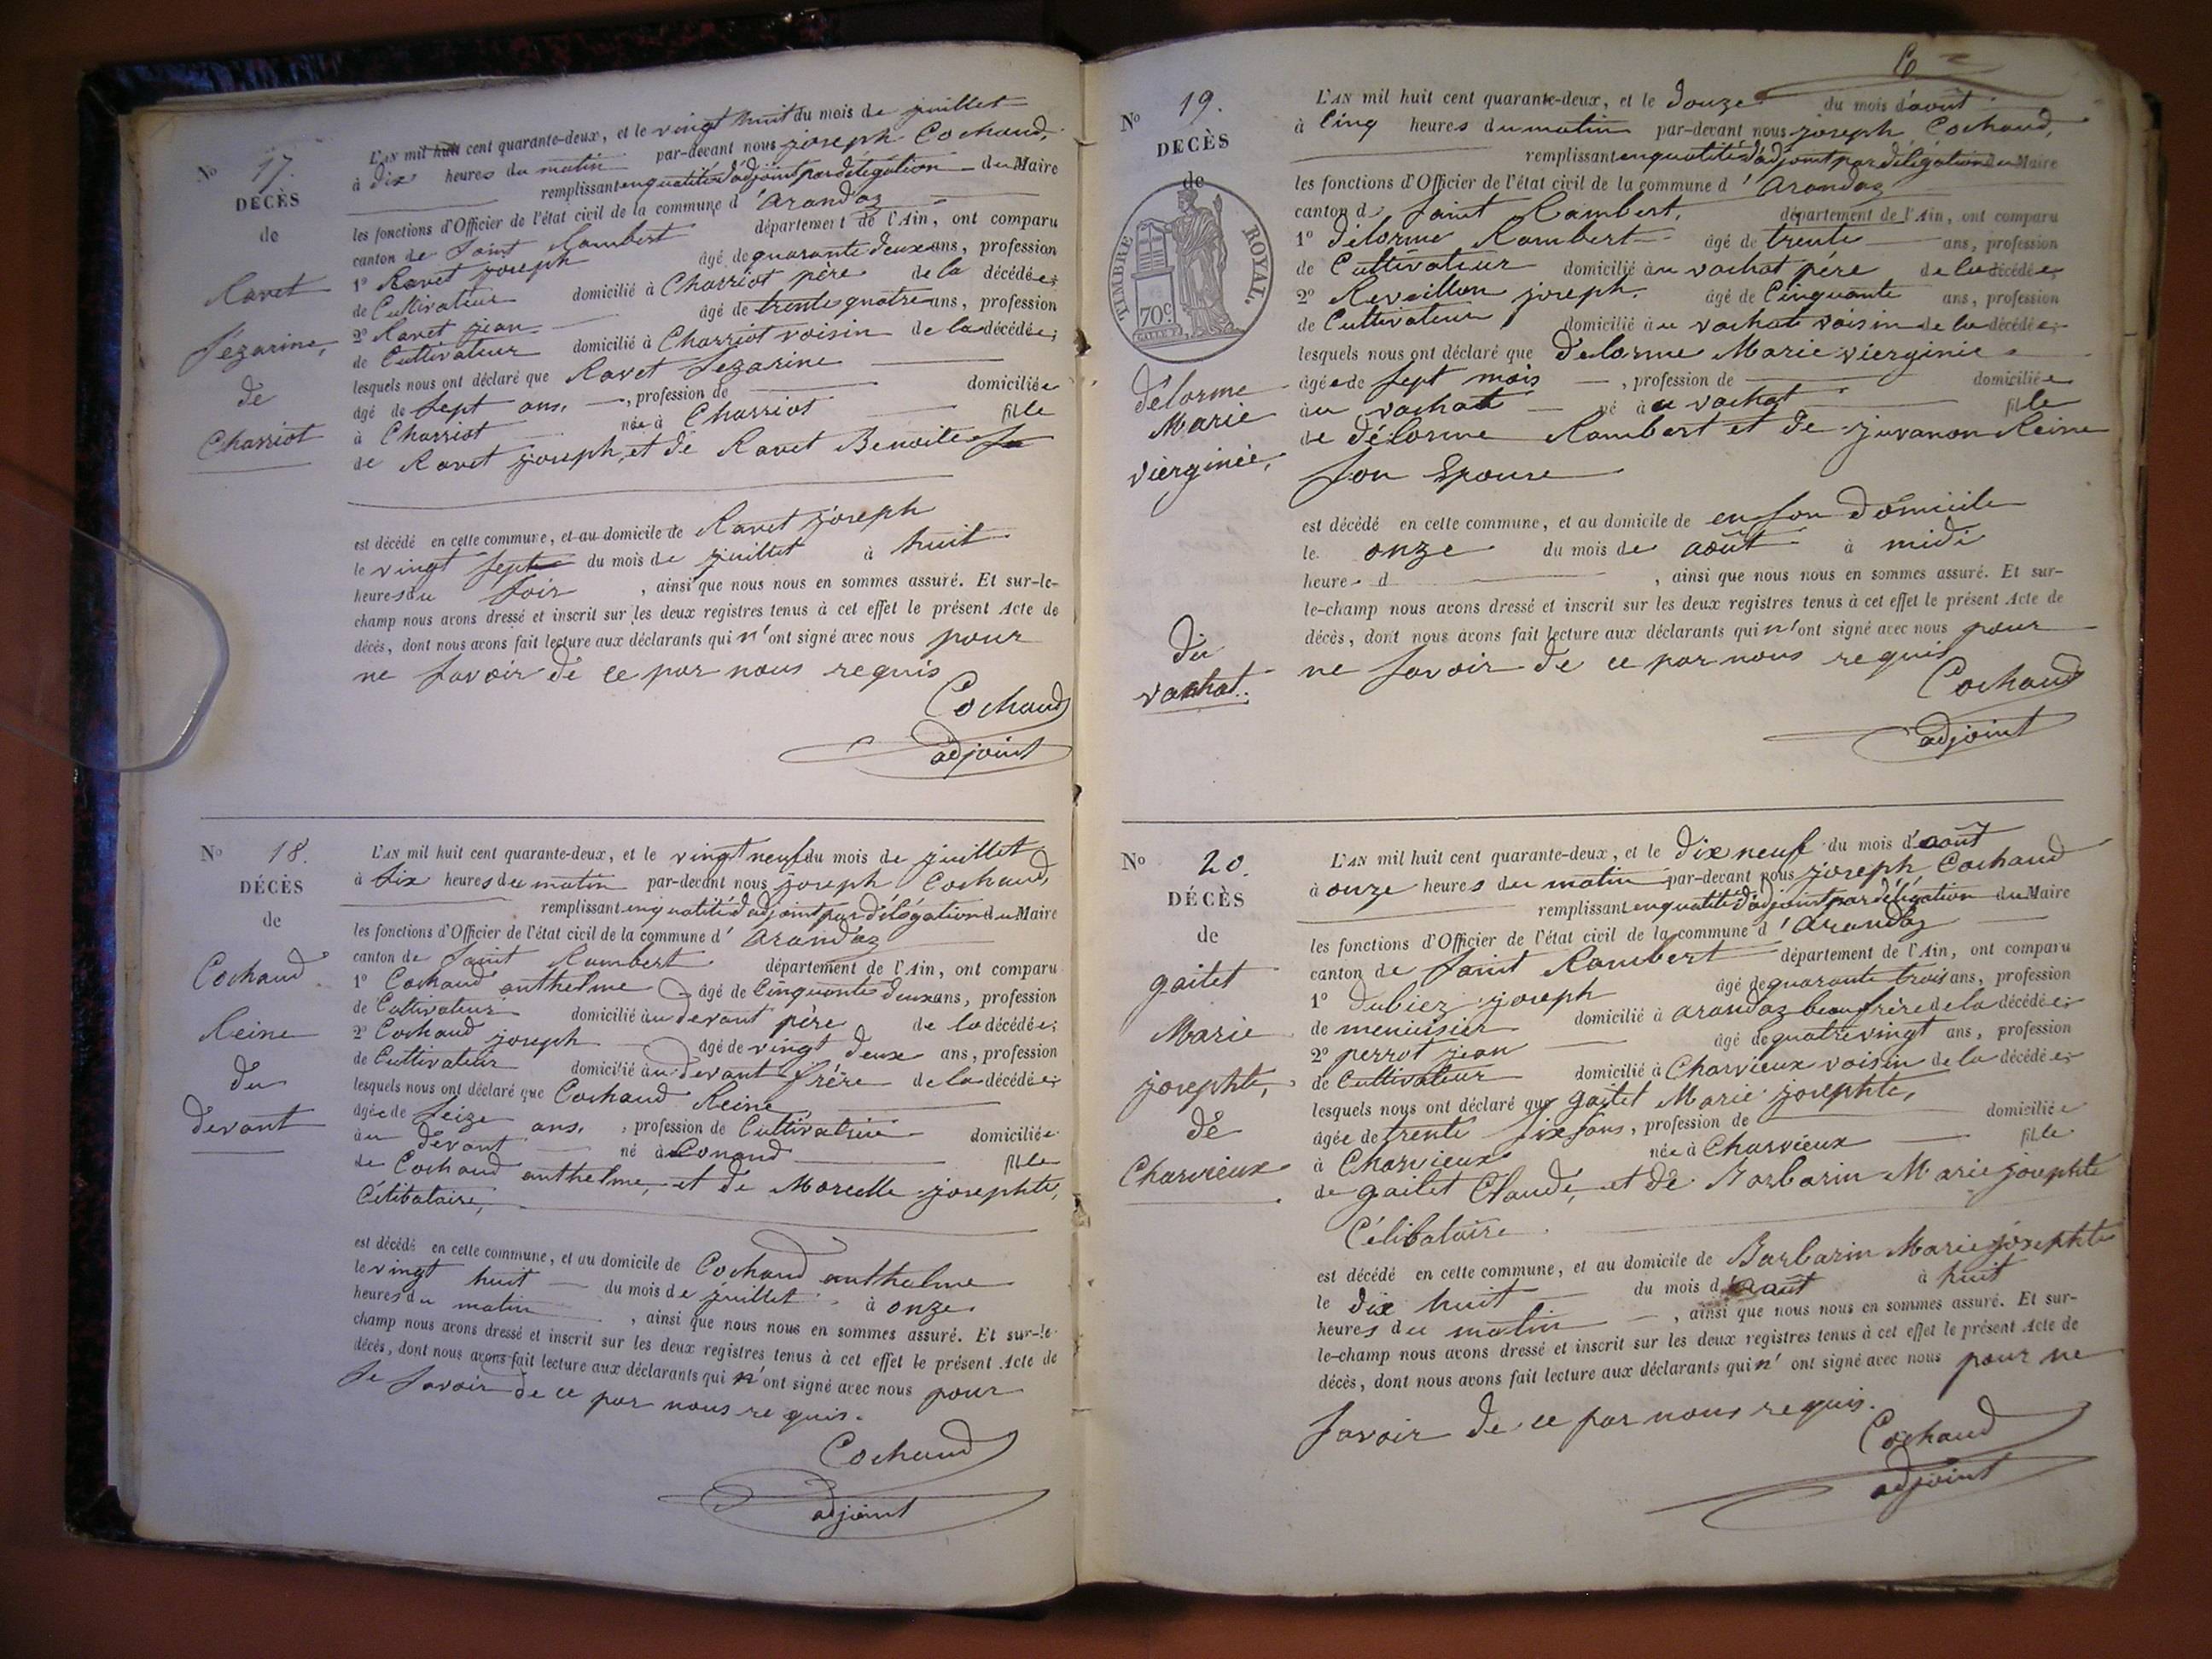 No 17.
DÉCÈS
de
Ravet
Sezarine,
de
Charriot
L'AN mil huit cent quarante-deux, et le vingt huit du mois de juillet
à dix heures du matin par-devant nous joseph Cochaud,
remplissant en qualité d'adjoint par délégation du Maire
les fonctions d'Officier de l'état civil de la commune d'arandaz
canton de Saint Rambert département de l'Ain, ont comparu
1° Ravet joseph âgé de quarante deux ans, profession
de Cultivateur domicilié à Charriot père de la décédée;
2° Ravet jean âgé de trente quatre ans, profession
de Cultivateur domicilié à Charriot voisin de la décédée;
lesquels nous ont déclaré que Ravet Sezarine
âgé de Sept ans, profession de domiciliée
à Charriot née à Charriot fille
de Ravet joseph, et de Ravet Benoite
est décédé en cette commune, et au domicile de Ravet joseph
le vingt Sept du mois de juillet à huit
heures du Soir, ainsi que nous nous en sommes assuré. Et sur-le-
champ nous avons dressé et inscrit sur les deux registres tenus à cet effet le présent Acte de
décès, dont nous avons fait lecture aux déclarants qui n'ont signé avec nous pour
ne Savoir de ce par nous requis
Cochaud
adjoint
No 18.
DÉCÈS
de
Cochaud
Reine
du
devant
L'AN mil huit cent quarante-deux, et le vingt neuf du mois de juillet
à Six heures du matin par-devant nous joseph Cochaud,
remplissant en qualité d'adjoint par délégation du Maire
les fonctions d'Officier de l'état civil de la commune d'arandaz
canton de Saint Rambert département de l'Ain, ont comparu
1° Cochaud anthelme âgé de Cinquante deux ans, profession
de Cultivateur domicilié au devant père de la décédée;
2° Cochaud joseph âgé de vingt deux ans, profession
de Cultivateur domicilié au devant frère de la décédée;
lesquels nous ont déclaré que Cochaud Reine
âgée de Seize ans, profession de Cultivatrice domiciliée
au devant né à Conand fille
de Cochaud anthelme, et de Morcelle josephte,
Célibataire,
est décédé en cette commune, et au domicile de Cochaud anthelme
le vingt huit du mois de juillet à onze
heures du matin, ainsi que nous nous en sommes assuré. Et sur-le-
champ nous avons dressé et inscrit sur les deux registres tenus à cet effet le présent Acte de
décès, dont nous avons fait lecture aux déclarants qui n'ont signé avec nous pour
le Savoir de ce par nous requis.
Cochaud
adjoint
No 19.
DÉCÈS
de
TIMBRE ROYAL.
70c
délorme
Marie
vierginie,
du
vachat.
L'AN mil huit cent quarante-deux, et le douze du mois d'août
à Cinq heures du matin par-devant nous joseph Cochaud,
remplissant en qualité d'adjoint par délégation du Maire
les fonctions d'Officier de l'état civil de la commune d'arandaz
canton de Saint Rambert, département de l'Ain, ont comparu
1° délorme Rambert âgé de trente ans, profession
de Cultivateur domicilié au vachat père de la décédée;
2° Reveillon joseph. âgé de Cinquante ans, profession
de Cultivateur domicilié au vachat voisin de la décédée;
lesquels nous ont déclaré que delorme Marie vierginie
âgée de Sept mois, profession de domiciliée
au vachat né à au vachat fille
de délorme Rambert et de juvanon Reine
Son Epouse
est décédé en cette commune, et au domicile de en Son domicile
le onze du mois de août à midi
heure d , ainsi que nous nous en sommes assuré. Et sur-
le-champ nous avons dressé et inscrit sur les deux registres tenus à cet effet le présent Acte de
décès, dont nous avons fait lecture aux déclarants qui n'ont signé avec nous pour
ne Savoir de ce par nous requis
Cochaud
adjoint
No 20.
DÉCÈS
de
gaitet
Marie
josephte,
de
Charvieux
L'AN mil huit cent quarante-deux, et le dix neuf du mois d'août
à onze heures du matin par-devant nous joseph Cochaud
remplissant en qualité d'adjoint par délégation du Maire
les fonctions d'Officier de l'état civil de la commune d'arandaz
canton de Saint Rambert département de l'Ain, ont comparu
1° dubiez joseph âgé de quarante trois ans, profession
de menuisier domicilié à arandaz beaufrère de la décédée;
2° perrot jean âgé de quatre vingt ans, profession
de Cultivateur domicilié à Charvieux voisin de la décédée;
lesquels nous ont déclaré que gaitet Marie josephte,
âgée de trente Six ans, profession de domiciliée
à Charvieux née à Charvieux fille
de gaitet Claude, et de Barbarin Marie josephte
Célibataire
est décédé en cette commune, et au domicile de Barbarin Marie josephte
le dix huit du mois d'août à huit
heures du matin, ainsi que nous nous en sommes assuré. Et sur-
le-champ nous avons dressé et inscrit sur les deux registres tenus à cet effet le présent Acte de
décès, dont nous avons fait lecture aux déclarants qui n'ont signé avec nous pour ne
Savoir de ce par nous requis.
Cochaud
adjoint